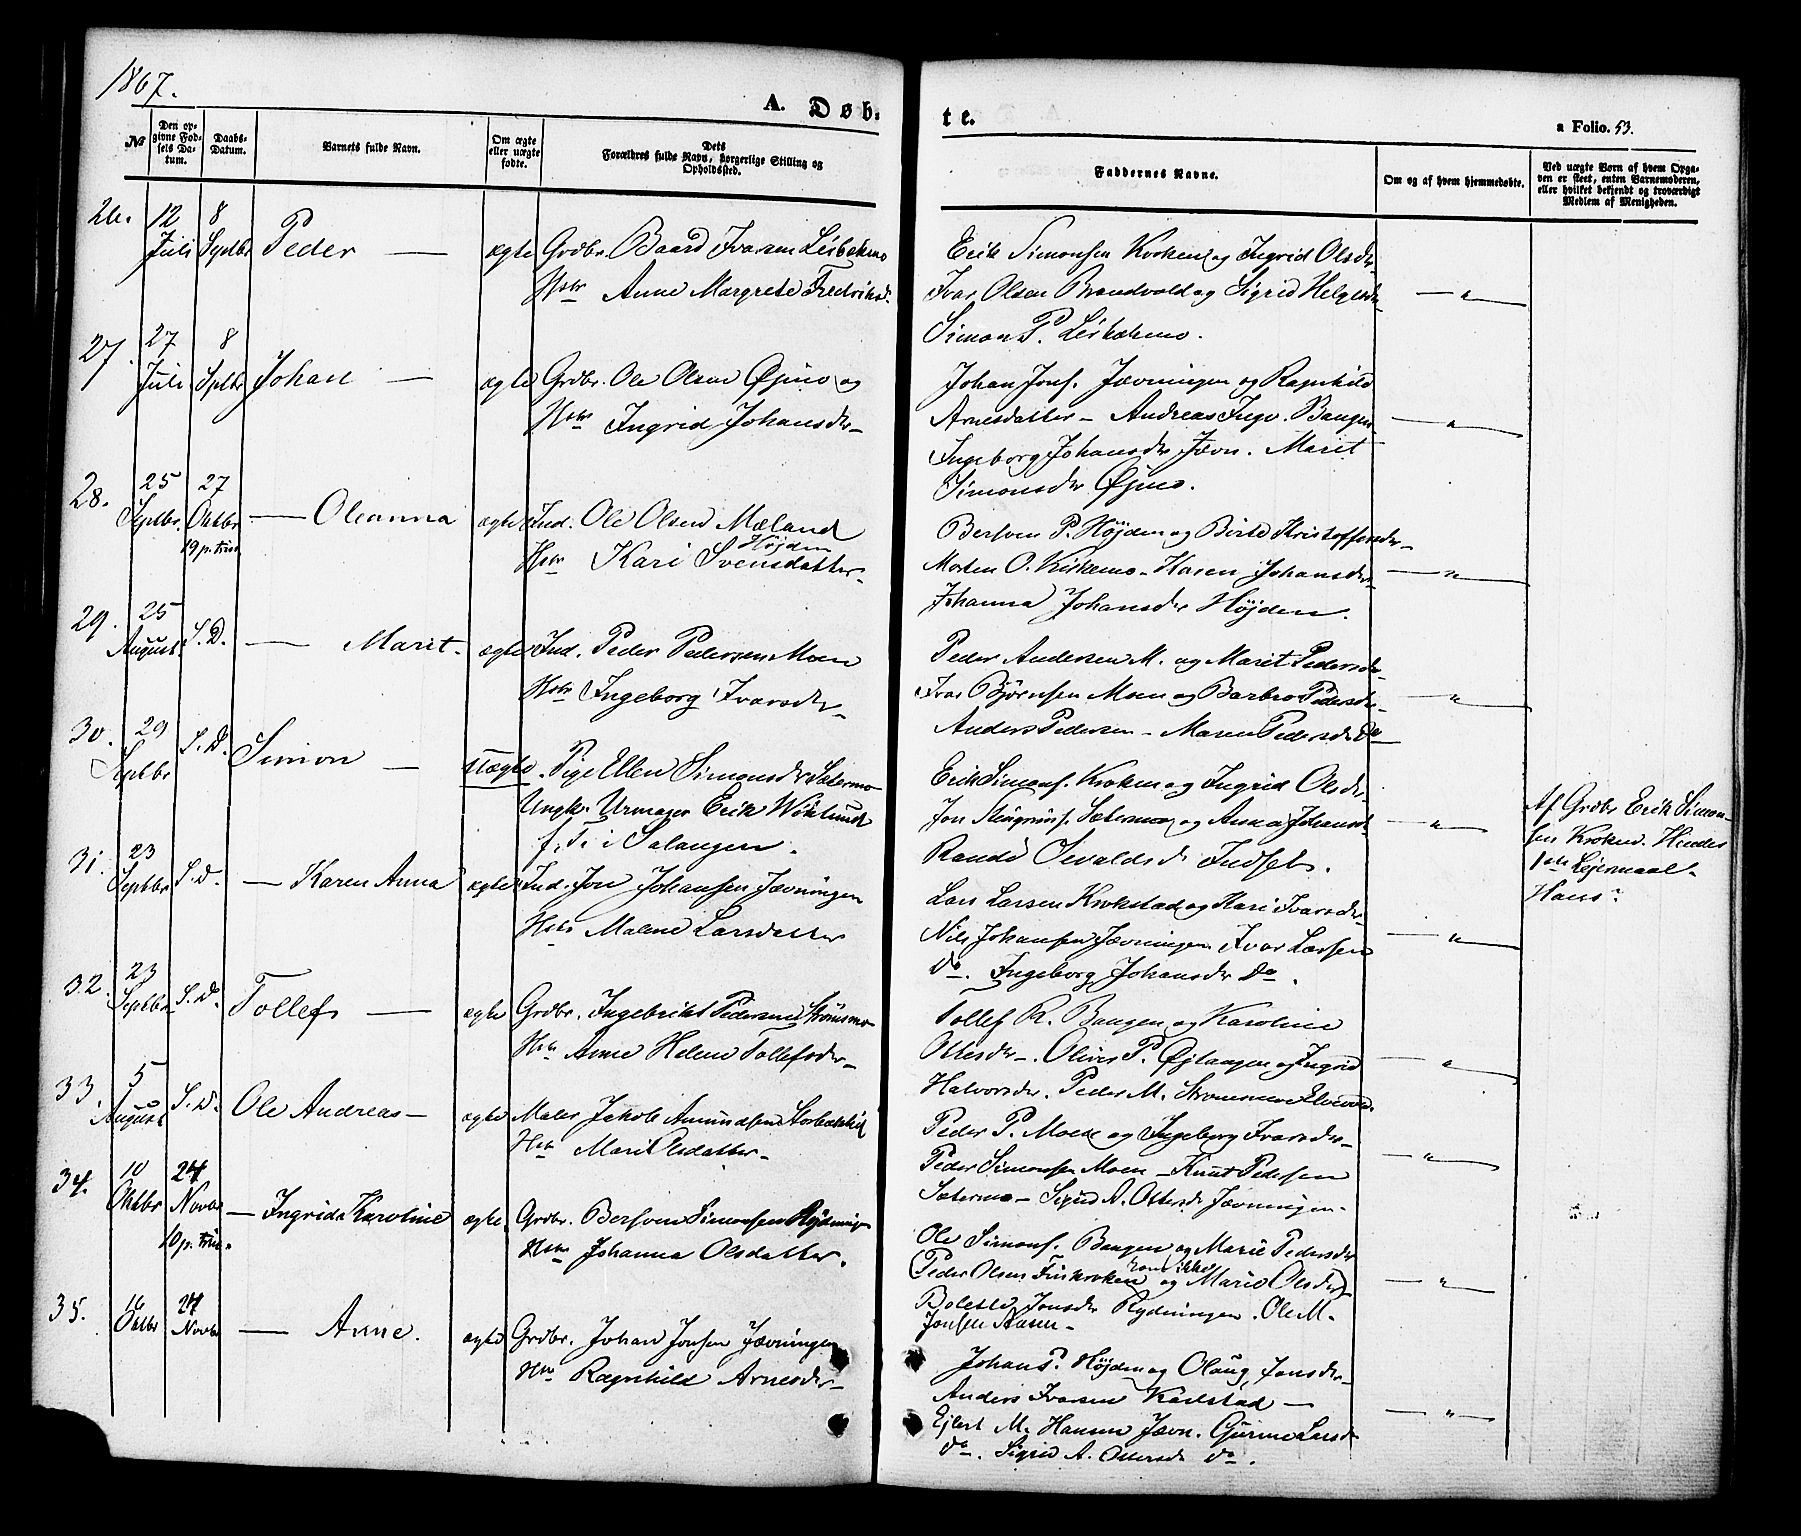 1867.
A. Døb-
te.
a Folio. 53.
No
Den op-
givne Fød-
sels Da-
tum.
Daabs-
Datum.
Barnets fulde Navn.
Om ægte
eller uægte
fødte.
Dets
Forældres fulde Navn, borgerlige Stilling og
Opholdssted.
Faddernes Navne.
Om og af hvem hjemmedøbte.
Ved uægte Børn af hvem Opga-
ven er skeet, enten Barnemoderen,
eller hvilket bekjendt og troværdigt
Medlem af Menigheden.
26. 12 Juli 8 Septbr Peder — ægte Grdbr. Baard Ivarsen
Hstr Anne Margrete Fredriksd.
Erik Simonsen Kroken og Ingrid Olsdr
Ivar Olsen Brandvold og Sigrid Helgesdr
Simon P.
— " —
27. 27 Juli 8 Sptbr Johan — ægte Grdbr. Ole Olsen Øjmo og
Hstr Ingrid Johansdr —
Johan Jons. Jævningen og Ragnhild
Arnesdatter — Andreas Ingv. Bangen
Ingeborg Johansdr Jævn. Marit
Simonsdr Øjmo.
— " —
28. 25 Septbr. 27 Oktbr 19 p. trin — Oleanna ægte Ind. Ole Olsen Mæland
Højden
Hstr Kari Svensdatter —
Bersven P. Højden og Birte Kristoffersdr —
Morten O. Kirkemo — Karen Johansdr
Johanna Johansdr Højden.
— " —
29. 25 August. S.D. — Marit. ægte Ind. Peder Pedersen Moen
Hstr Ingeborg Ivarsdr —
Peder Andersen M. og Marit Pedersdr
Ivar Bjørnsen Moen og Barbro Pedersdr
Anders Pedersen — Maren Pedersdr Do
— " —
30. 29 Septbr S.D. Simon — uægte. Pige Ellen Simonsdr Sætermo
Ungk. Urmager Erik Wiklund
f. T. i Salangen.
Erik Simons. Kroken og Ingrid Olsdr
Jon Steingrims. Sætermo og Anna Johansd
Randi Sevaldsd Indset.
— " —
Af Grdbr Erik Simon-
sen Kroken. Hendes
1ste Lejermaal —
Hans?
31. 23 Septbr S.D. — Karen Anna ægte Ind. Jon Johansen Jævningen
Hstr Malene Larsdatter
Lars Larsen Krokstad og Kari Ivarsdr
Nils Johansen Jævningen Ivar Larsen
Do. Ingeborg Johansdr Do.
— " —
32. 23 Septbr S.D. Tollef — ægte Grdbr. Ingebrikt Pedersen Strømsmo
Hstr Anne Helene Tollefsdr —
Tollef R. Bangen og Karoline
Ottesdr —. Oliver P. Øjlangen og Ingrid
Halvorsdr. Peder M. Strømsmo
— " —
33. 5 August S.D. Ole Andreas — ægte Maler Jakob Amundsen Storbakken
Hstr Mari Olsdatter —
Peder P. Moen og Ingeborg Ivarsdr —
Peder Simonsen Moen — Knut Pedersen
Sætermo — Sigrid A. Ottersd Jævningen —
— " —
34. 10 Oktbr 24 Novbr 10 p. trin. — Ingrida Karoline ægte. Grdbr. Bersven Simonsen Rydningen
Hstr Johanna Olsdatter.
Ole Simons. Bangen og Marie Pedersdr
kom ikke
(Peder Olsen Finkroken og Marie Olsdr)
Bolette Jonsdr Rydningen. Ole M.
Jonsen Aasen —
— " —
35. 16 Oktbr 24 Novbr — Anne. ægte Grdbr. Johan Jonsen Jævningen
Hstr Ragnhild Arnesdr —
Johan P. Højden og Olaug Jonsdr —
Anders Ivarsen Karlstad —
Ejlert M. Hansen Jævn. Gurine Larsd
do —. Sigrid A. Ottersd do.
— " —